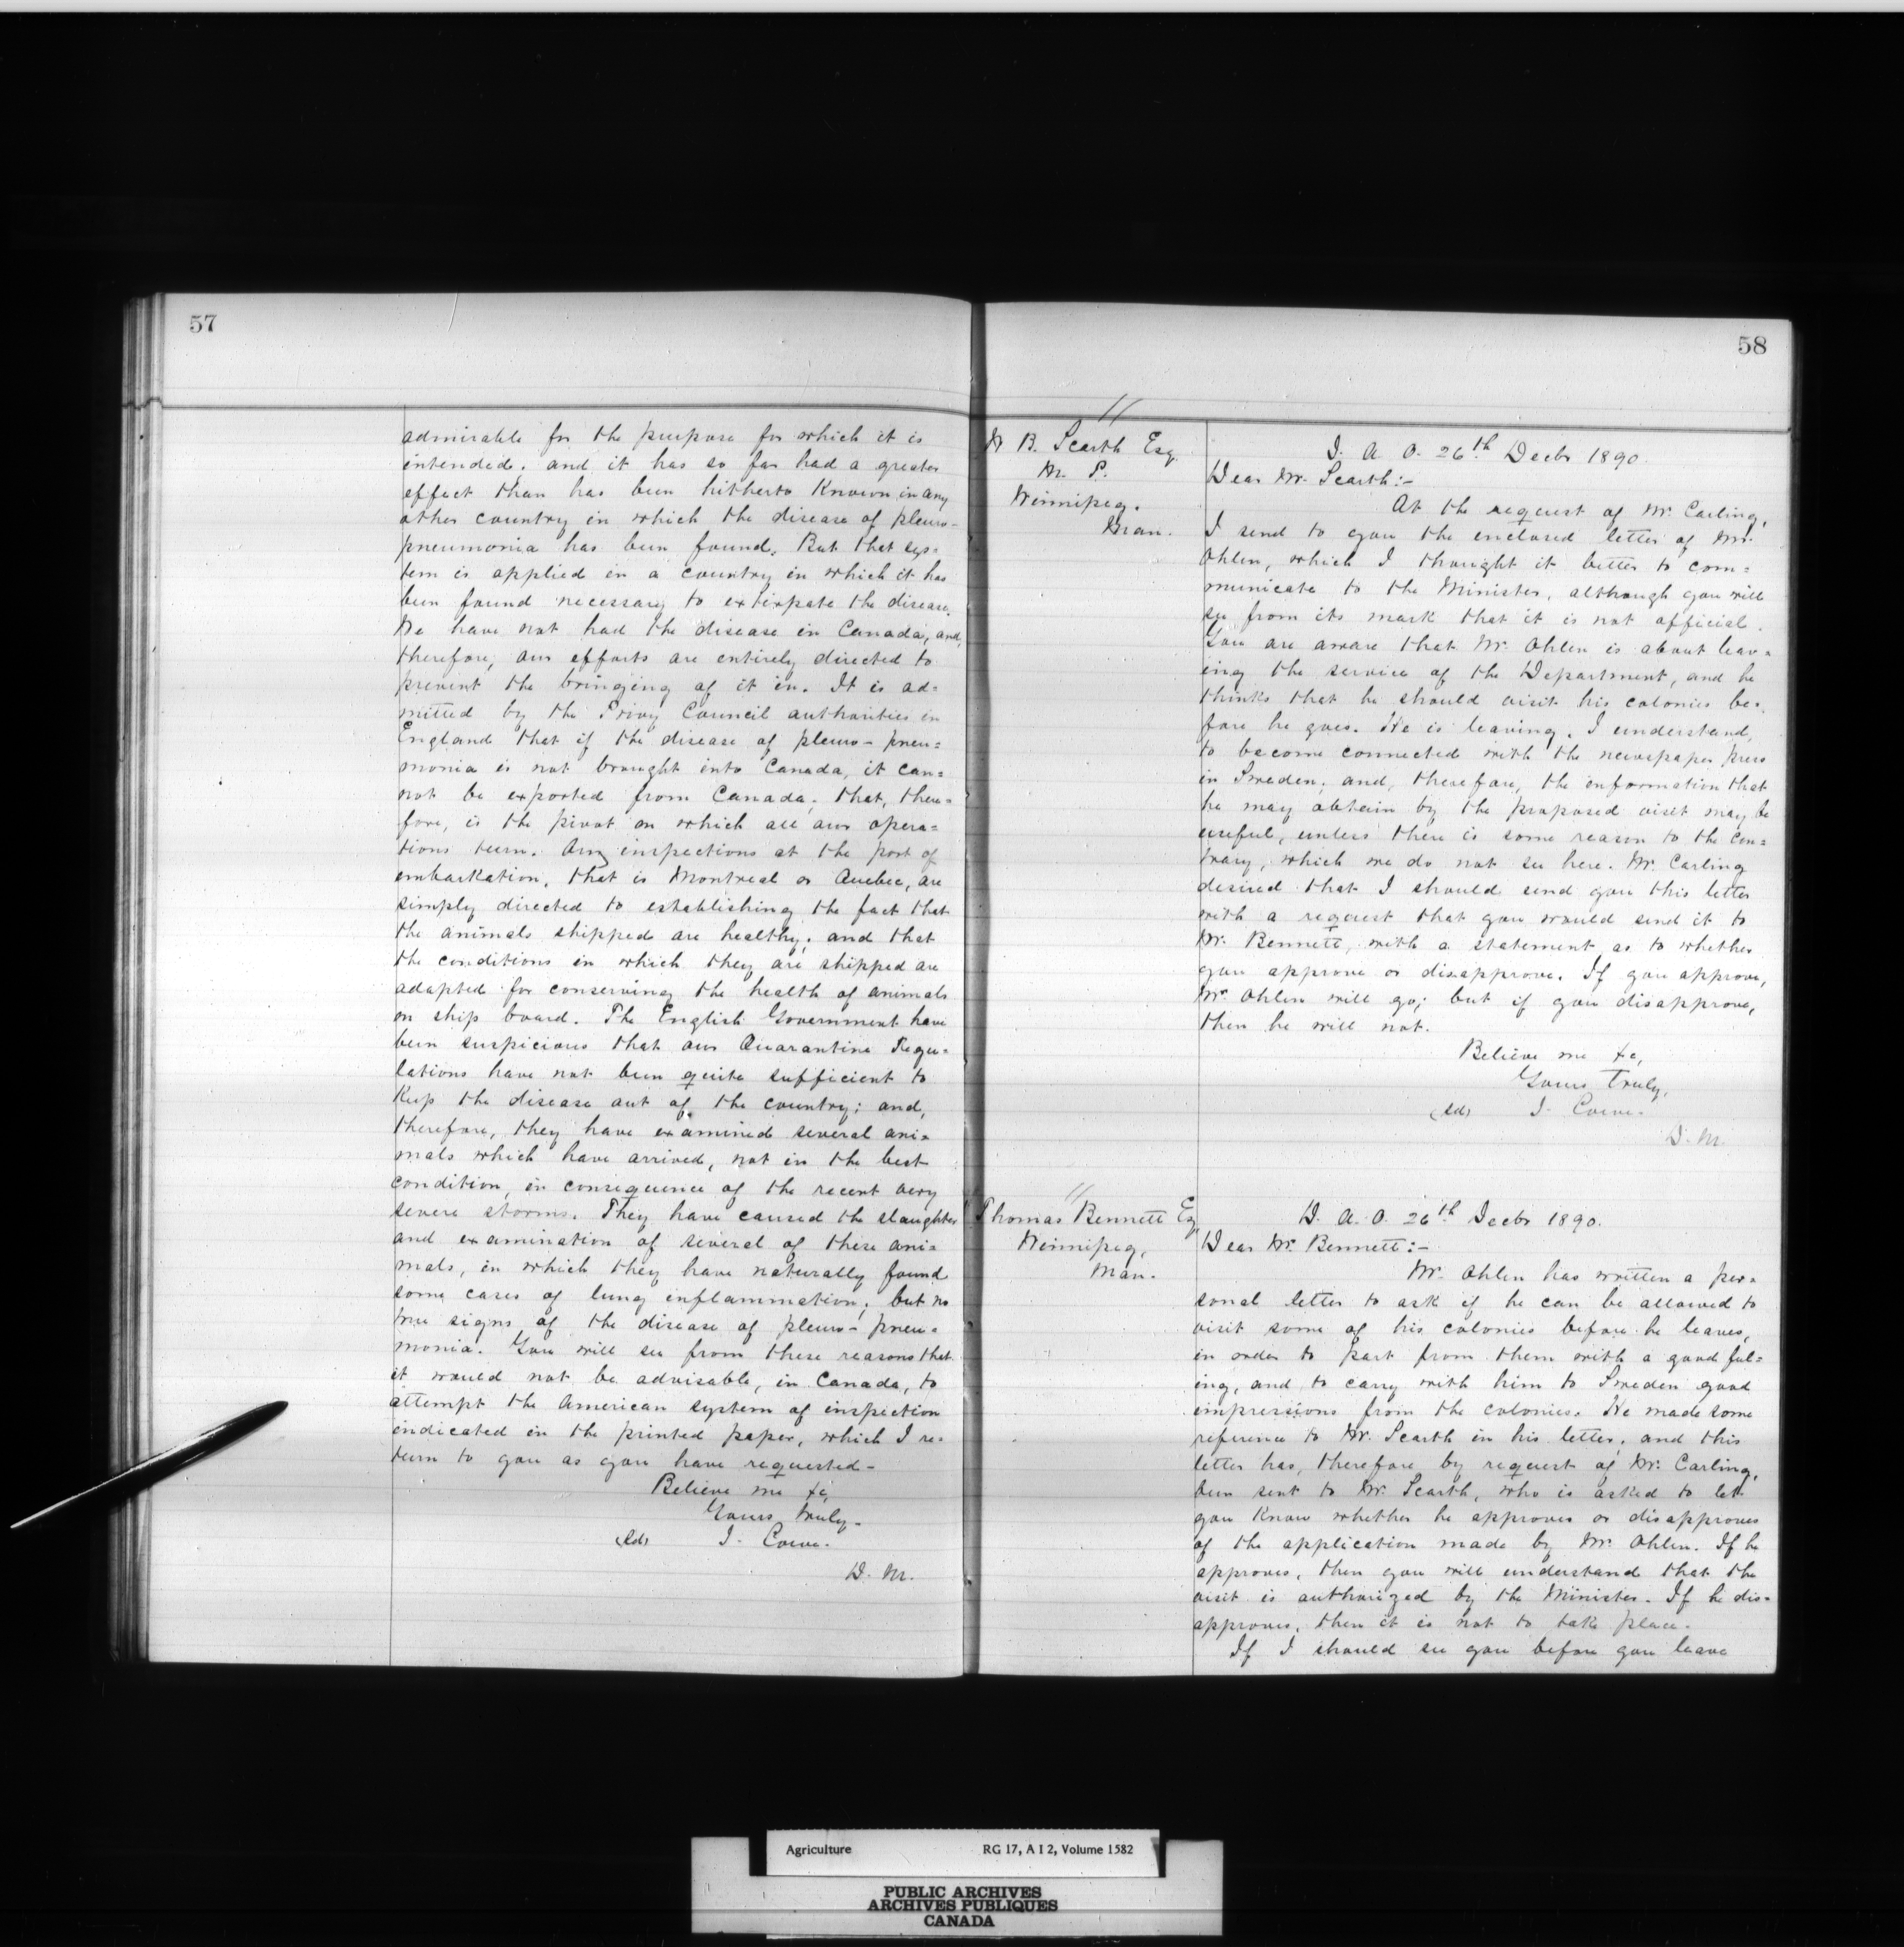 57
admirable for the purpose for which it is
intended. and it has so far had a greater
effect than has been hitherto known in any
other country in which the disease of pleuro-
pneumonia has been found. But that sys=
tem is applied in a country in which it has
been found necessary to extirpate the disease.
We have not had the disease in Canada, and,
therefore, our efforts are entirely directed to
prevent the bringing of it in. It is ad=
mitted by the Privy Council authorities in
England that if the disease of pleuro-pneu=
monia is not brought into Canada, it can=
not be exported from Canada. that, there=
fore, is the pivot on which all our opera=
tions turn. Any inspections at the port of
embarkation, that is Montreal or Quebec, are
simply directed to establishing the fact that
the animals shipped are healthy; and that
the conditions in which they are shipped are
adapted for conserving the health of animals
on ship board. The English Government have
been suspicious that our Quarantine Regu=
lations have not been quite sufficient to
keep the disease out of the country; and,
therefore, they have examined several ani=
mals which have arrived, not in the best
condition, in consequence of the recent very
severe storms. They have caused the slaughter
and examination of several of these ani=
mals, in which they have naturally found
some cases of lung inflammation; but no
true signs of the disease of pleuro-pneu=
monia. You will see from these reasons that
it would not be advisable, in Canada, to
attempt the American system of inspection
indicated in the printed paper, which I re=
turn to you as you have requested-
Believe me &c,
Yours truly.
(sd) J. Lowe.
D. M.
58
W B. Scarth Esq.
M. P.
Winnipeg.
Man.
D. A. O. 26th Decbr 1890.
Dear Mr. Scarth:-
At the request of Mr. Carling,
I send to you the enclosed letter of Mr.
Ohlen, which I thought it better to com=
municate to the Minister, although you will
see from its mark that it is not official.
You are aware that Mr. Ohlen is about leav=
ing the service of the Department, and he
thinks that he should visit his colonies be=
fore he goes. He is leaving, I understand,
to become connected with the newspaper press
in Sweden; and, therefore, the information that
he may obtain by the proposed visit may be
useful, unless there is some reason to the con=
trary, which we do not see here. Mr. Carling
desired that I should send you this letter
with a request that you would send it to
Mr. Bennett, with a statement as to whether
you approve or disapprove. If you approve,
Mr. Ohlen will go; but if you disapprove,
then he will not.
Believe me &c,
Yours Truly,
(sd) J. Lowe.
D. M.
Thomas Bennett Esq
Winnipeg,
Man.
D. A. O. 26th Decbr 1890.
Dear Mr. Bennett:-
Mr. Ohlen has written a per=
sonal letter to ask if he can be allowed to
visit some of his colonies before he leaves,
in order to part from them with a good feel=
ing, and to carry with him to Sweden good
impressions from the colonies. He made some
reference to Mr. Scarth in his letter; and this
letter has, therefore by request of Mr. Carling,
been sent to Mr. Scarth, who is asked to let
you know whether he approves or disapproves
of the application made by Mr. Ohlen. If he
approves, then you will understand that the
visit is authorized by the Minister. If he dis=
approves, then it is not to take place.
If I should see you before you leave
Agriculture RG 17, A I 2, Volume 1582
PUBLIC ARCHIVES
ARCHIVES PUBLIQUES
CANADA